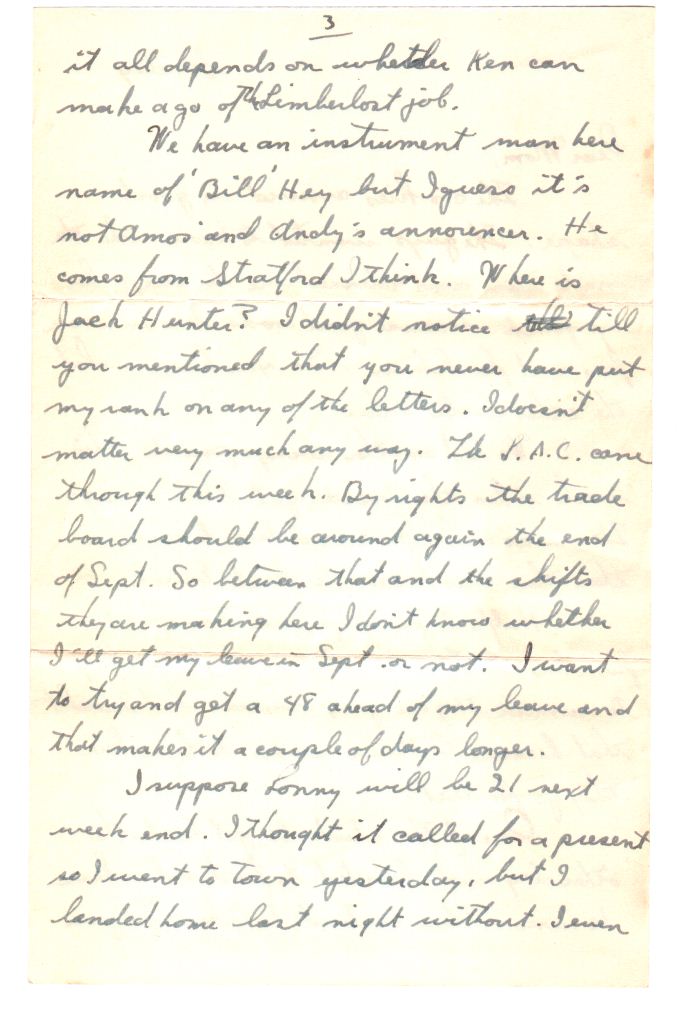 3
it all depends on whether Ken can
make a go of th Limberlost job.
We have an instrument man here
name of 'Bill' Hey but I guess it's
not Amos and Andy's announcer. He
comes from Stratford I think. Where is
Jack Hunter? I didn't notice till
you mentioned that you never have put
my rank on any of the letters. I doesn't
matter very much any way. The L.A.C. came
through this week. By rights the trade
board should be around again the end
of Sept. So between that and the shifts
they are making here I don't know whether
I'll get my leave in Sept. or not. I want
to try and get a 48 ahead of my leave and
that makes it a couple of days longer.
I suppose Lonny will be 21 next
week end. I thought it called for a present
so I went to town yesterday, but I
landed home last night without. I even